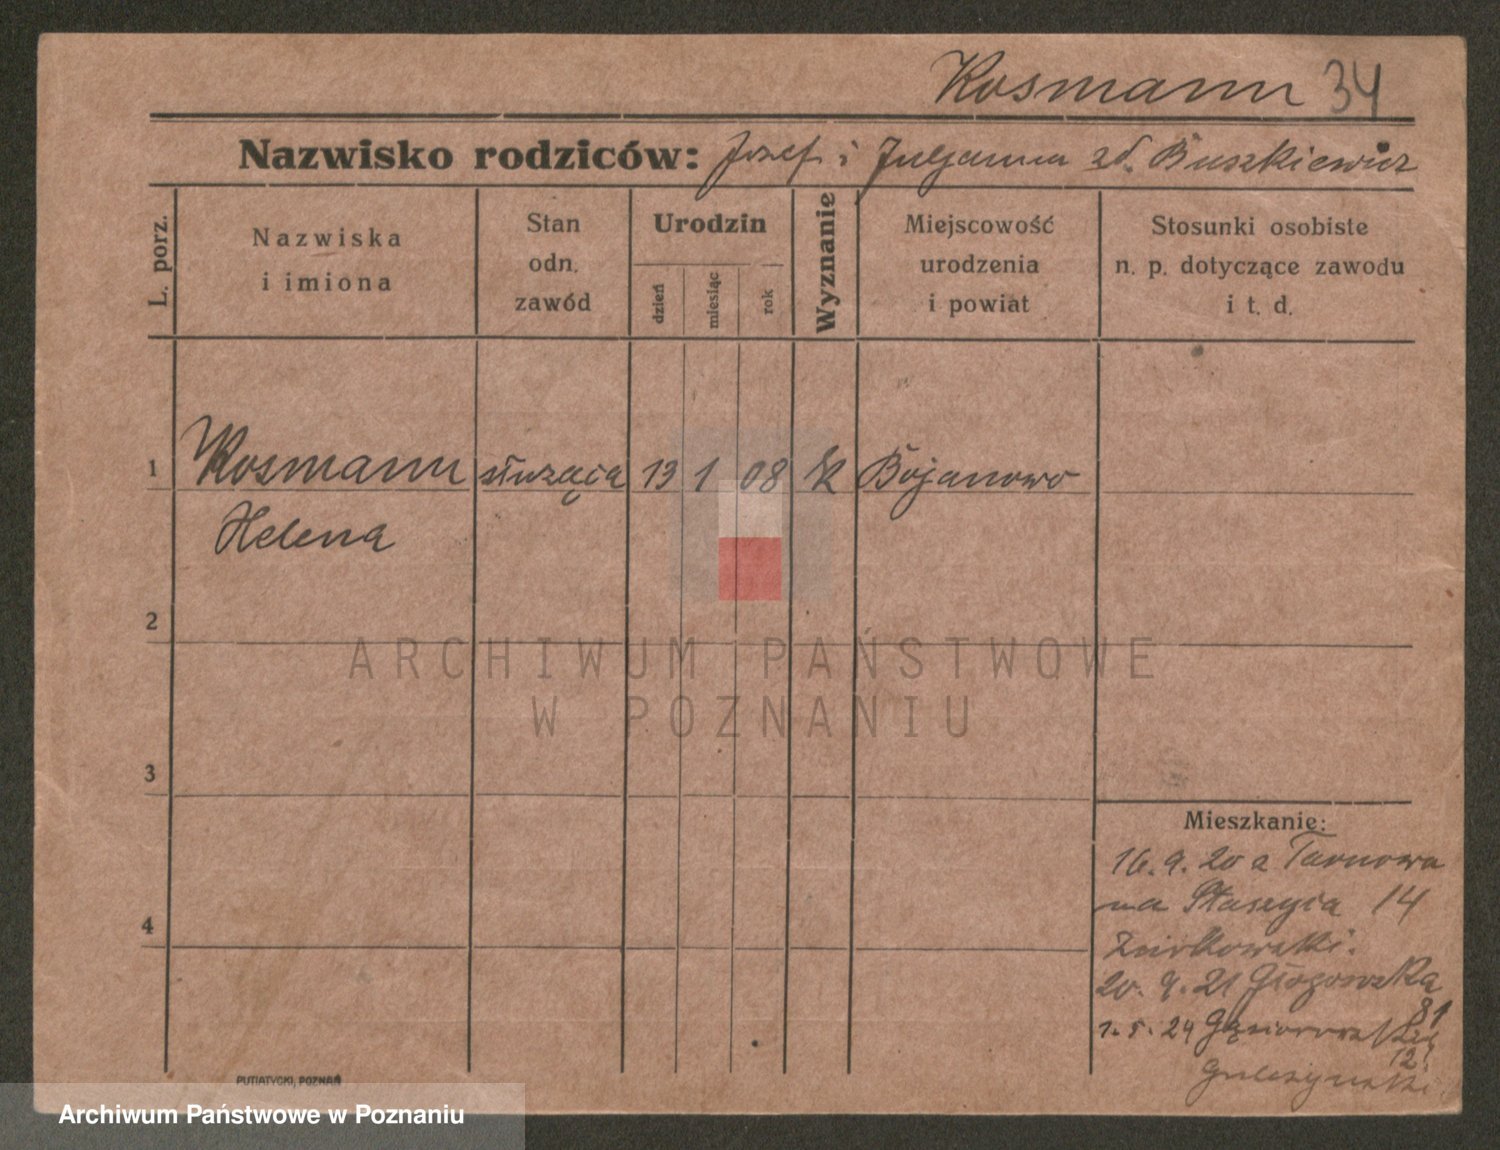 Kosmann 34
Nazwisko rodziców: Jozef i Juljanna zd. Buszkiewicz
L. porz.
Nazwiska
i imiona
Stan
odn.
zawód
Urodzin
dzień
miesiąc
rok
Wyznanie
Miejscowość
urodzenia
i powiat
Stosunki osobiste
n. p. dotyczące zawodu
i t. d.
1 Kosmann służąca 13 1 08 k Bojanowo
Helena
2
ARCHIWUM PAŃSTWOWE
W POZNANIU
3
Mieszkanie:
16.9.20 z Tarnowa
na Staszyca 14
4
Ziółkowski.
20.9.21 Głogowska
81
1.5.24
12
PUTIATYCKI, POZNAŃ
Archiwum Państwowe w Poznaniu